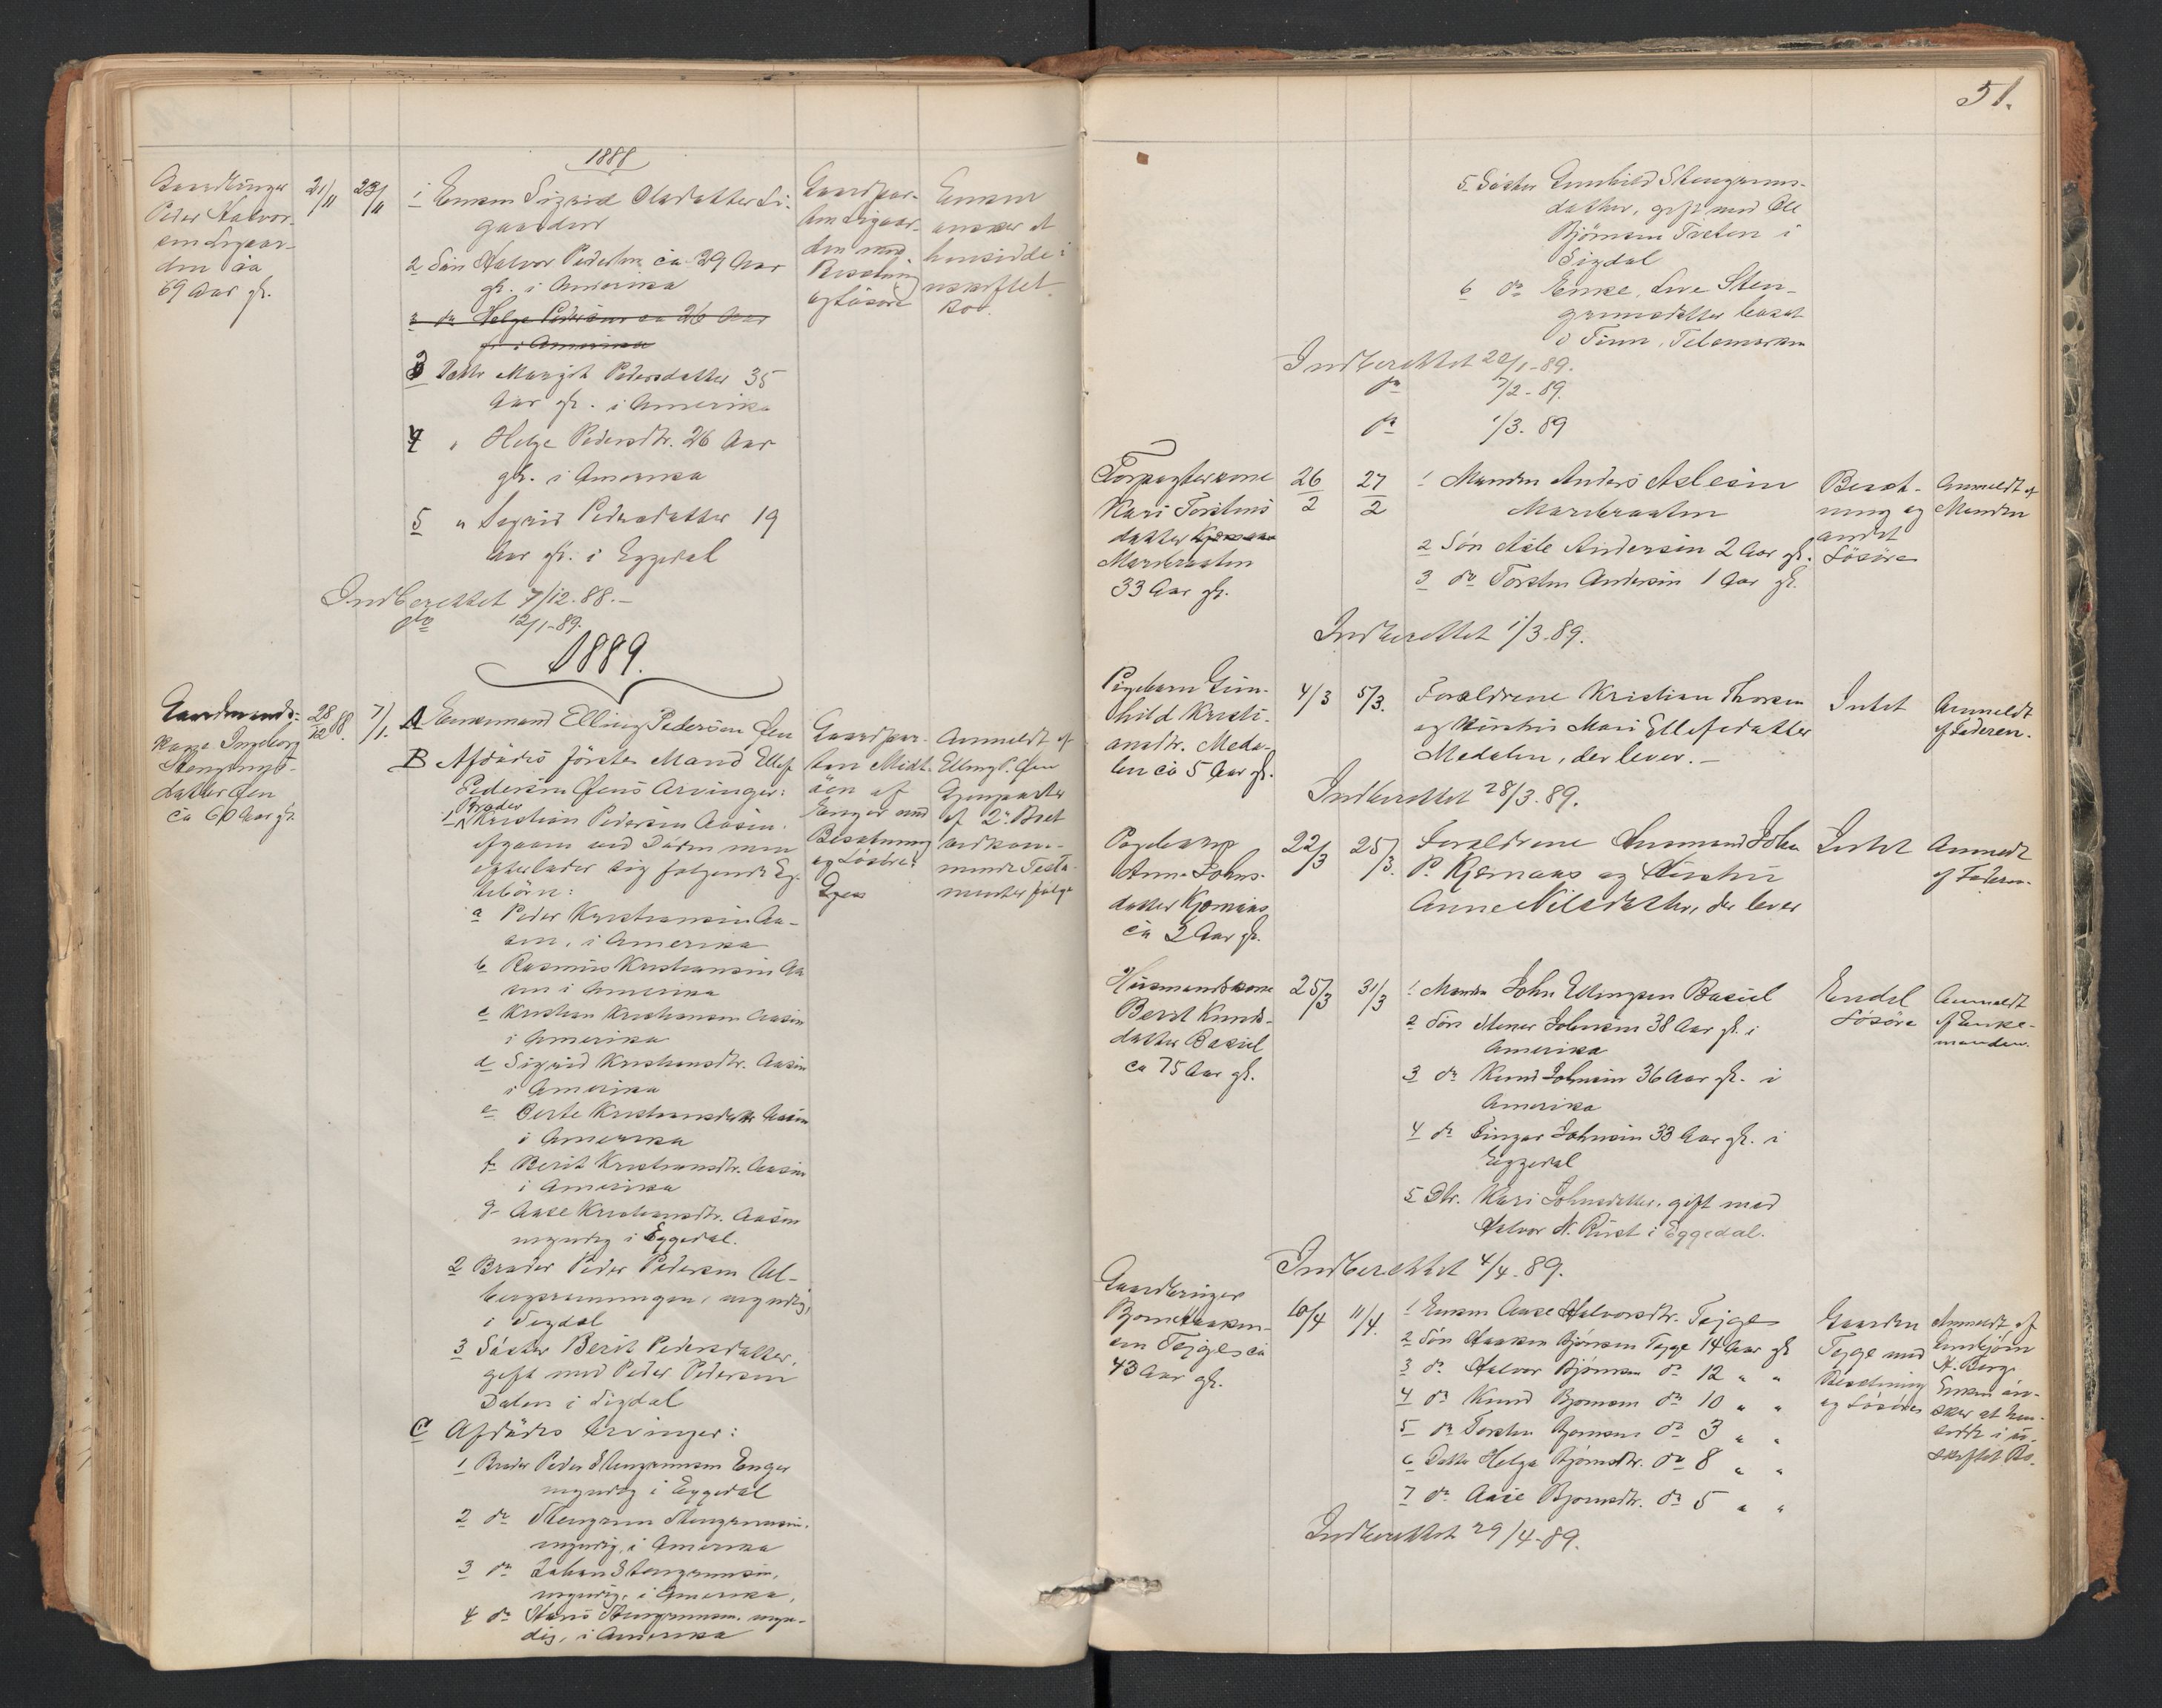 1888
Gaardbruger
Peder Halvor-
sen Ligaar-
den ca
69 Aar gl.
21/11
23/11
1 Enken Sigrid Olsdatter Li-
gaarden
2 Søn Halvor Pedersen ca 39 Aar
gl. i Amerika
3 do Helge Pedersen ca 26 Aar
gl. i Amerika
3 Datter Margit Pedersdatter 35
Aar gl. i Amerika
4 " Helge Pedersdtr. 26 Aar
gl. i Amerika
5 " Sigrid Pedersdatter 19
Aar gl. i Eggedal
Gaardpar-
ten Ligaar-
den med
Besætning
og Løsøre
Enken
ønsker at
hensidde i
uskiftet
Bo.
Indberettet 7/12-88.-
do 12/1-89.
1889.
Gaardmands-
kone Ingeborg
Stengrims-
datter Øen
ca 60 Aar gl.
28/12 88.
7/1.
A Enkemand Elling Pedersen Øen
B Afdødes første Mand Ellef
Pedersen Øens Arvinger:
1 Broder Kristian Pedersen Aasen
afgaaen ved Døden men
efterlader sig følgende Eg-
tebørn:
a Peder Kristiansen Aa-
sen, i Amerika
b Rasmus Kristiansen Aa
sen i Amerika
c Kristian Kristiansen Aasen
i Amerika
d Sigrid Kristiansdtr. Aasen
i Amerika
e Berte Kristiansdatter Aasen
i Amerika
f Berit Kristiansdtr. Aasen
i Amerika
g Aase Kristiansdtr. Aasen
myndig i Eggedal.
2 Broder Peder Pedersen Al-
bergsrunningen, myndig,
i Sigdal
3 Søster Berit Pedersdatter,
gift med Peder Pedersen
Dalen i Sigdal
C Afdødes Arvinger:
1 Broder Peder Stengrimsen Enger
myndig i Eggedal
2 do Stengrim Stengrimsen,
myndig, i Amerika
3 do Johan Stengrimsen,
myndig, i Amerika,
4 do Hans Stengrimsen, myn-
dig, i Amerika
Gaardpar-
ten Midt-
øen af
Enger med
Besætning
og Løsøre:
Anmeldt af
Elling P. Øen
Gjenparter
af 2de Bret
vedkom-
mende Testa-
menter følge
51.
5 Søster Gunhild Stengrims-
datter, gift med Ole
Bjørnsen Tveten i
Sigdal
6 do Enke, Live Sten-
grimsdatter bosat
i Tinn, Telemarken
Indberettet 20/1-89.
do 7/2-89.
do 1/3-89
Forpagterkone
Kari Torstens
datter
Marebraaten
33 Aar gl.
26/2
27/2
1 Manden Anders Aslesen
Marebraaten
2 Søn Asle Andersen 2 Aar gl.
3 do Torsten Andersen 1 Aar gl.
Besæt-
ning og
andet
Løsøre
Anmeldt af
Manden
Indberettet 1/3-89.
Pigebarn Gun-
hild Kristi-
ansdtr. Meda-
len ca 5 Aar gl.
4/3
5/3.
Forældrene Kristian Thorsen
og Hustru Mari Ellefsdatter
Medalen, der lever.-
Intet
Anmeldt
af Faderen.
Indberettet 28/3-89.
Pigebarn
Anne Johns-
datter Kjomaas
ca 2 Aar gl.
22/3
25/3.
Forældrene Husmand John
P. Kjomaas og Hustru
Anne Nilsdatter, der lever
Intet
Anmeldt
af Faderen.
Husmandskone
Berit Knuds-
datter Basiel
ca 75 Aar gl.
25/3
31/3
1 Manden John Ellingsen Basiel
2 Søn Stener Johnsen 38 Aar gl. i
Amerika
3 do Knud Johnsen 36 Aar gl. i
Amerika
4 do Johnsen 33 Aar gl. i
Eggedal
5 Dtr. Kari Johnsdatter, gift med
Halvor N. Rust i Eggedal.
Endel
Løsøre
Anmeldt
af Enke-
manden.
Indberettet 4/4-89.
Gaardbruger
Bjørn Haaken-
sen Teige ca
43 Aar gl.
10/4
11/4.
1 Enken Aase Halvorsdtr. Teige
2 Søn Haaken Bjørnsen Teige 14 Aar gl
3 do Halvor Bjørnsen do 12 " "
4 do Knud Bjørnsen do 10 " "
5 do Torsten Bjørnsen do 3 " "
6 Datter Helga Bjørnsdtr. do 8 " "
7 do Aase Bjørnsdtr. do 5 " "
Gaarden
Teige med
Besætning
og Løsøre
Anmeldt af
H. Berg.
Enken øn-
sker at hen-
sidde i u-
skiftet Bo.
Indberettet 29/4-89.